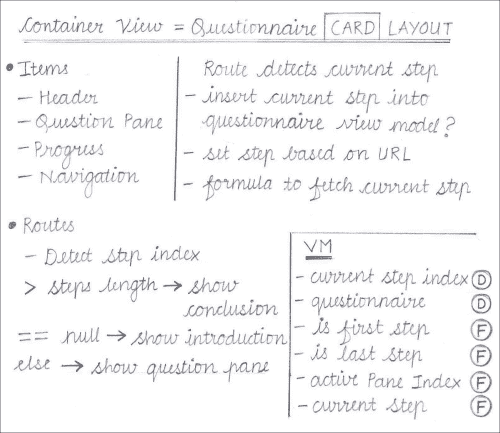 Container View = Questionnaire CARD LAYOUT
• Items
– Header
– Question Pane
– Progress
– Navigation
Route detects current step
– insert current step into
questionnaire view model?
– set step based on URL
– formula to fetch current step
• Routes
– Detect step index
> steps length → show
conclusion
== null → show introduction
else → show question pane
VM
– current step index D
– questionnaire D
– is first step F
– is last step F
– active Pane Index F
– current step F